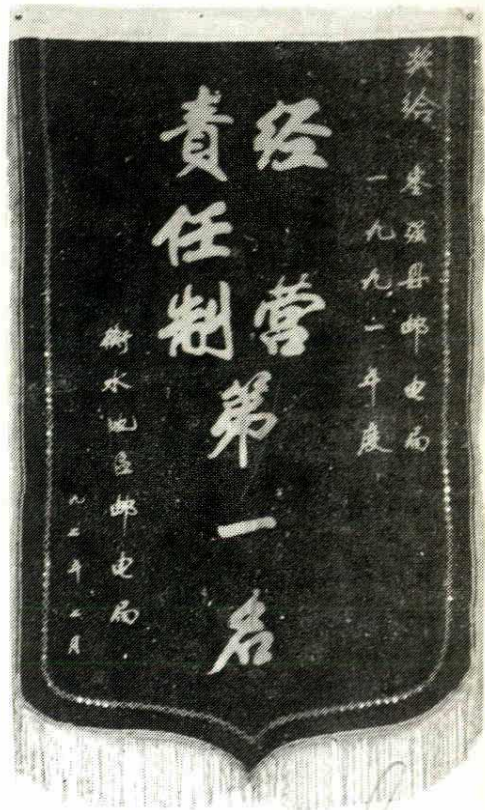 奖给 枣强县邮电局
一九九一年度
经营
責任制
第一名
衡水地区邮电局
九二年二月